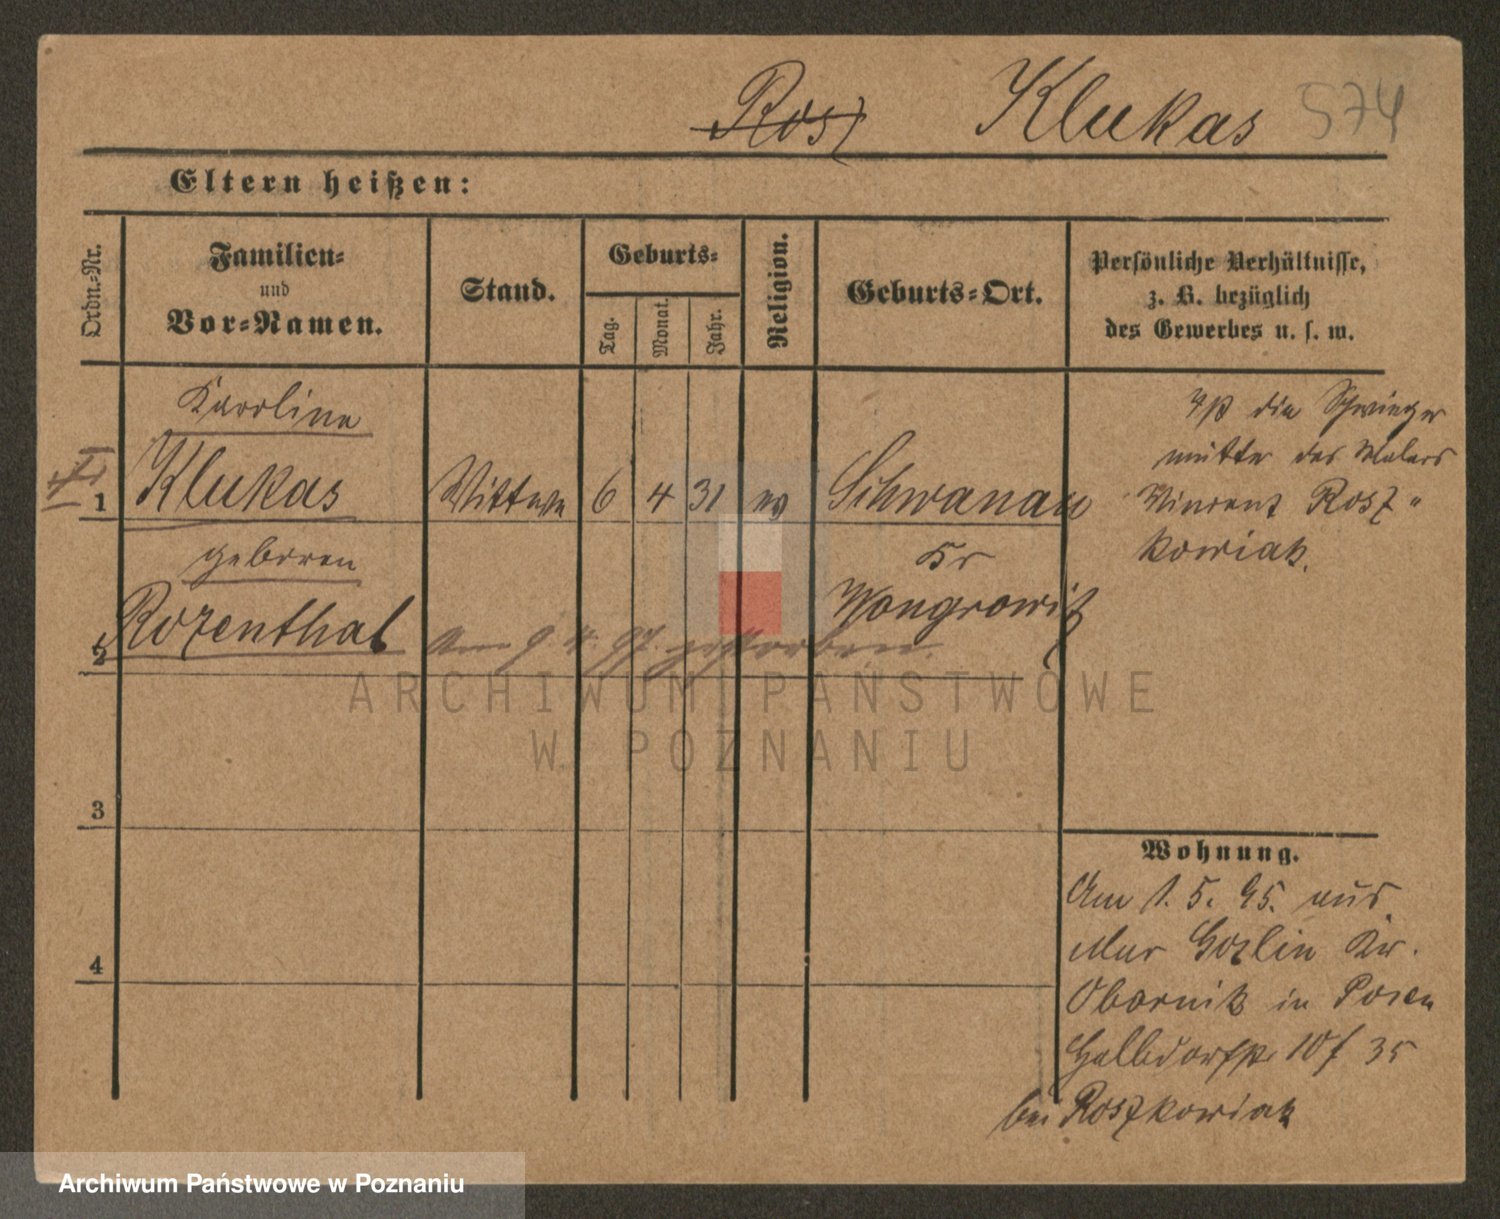 Rosz Klukas 574
Eltern heißen:
Ordn.-Nr.
Familien-
und
Vor-Namen.
Stand.
Geburts-
Tag.
Monat.
Jahr.
Religion.
Geburts-Ort.
Persönliche Verhältnisse,
z. B. bezüglich
des Gewerbes u. s. w.
Karoline
1 Klukas Wittwe 6 4 31 ev Schwanau
geboren
Kr
Rozenthal Wongrowitz
2 Am 9. 4. 97. gestorben.
ist die Schwieger
mutter des Malers
Vincent Rosz-
kowiak.
3
4
Wohnung.
Am 1. 5. 95. aus
Mur Goslin Kr.
Obornik in Posen
Halbdorfstr 10 35
bei Roszkowiak
ARCHIWUM PAŃSTWOWE
W POZNANIU
Archiwum Państwowe w Poznaniu